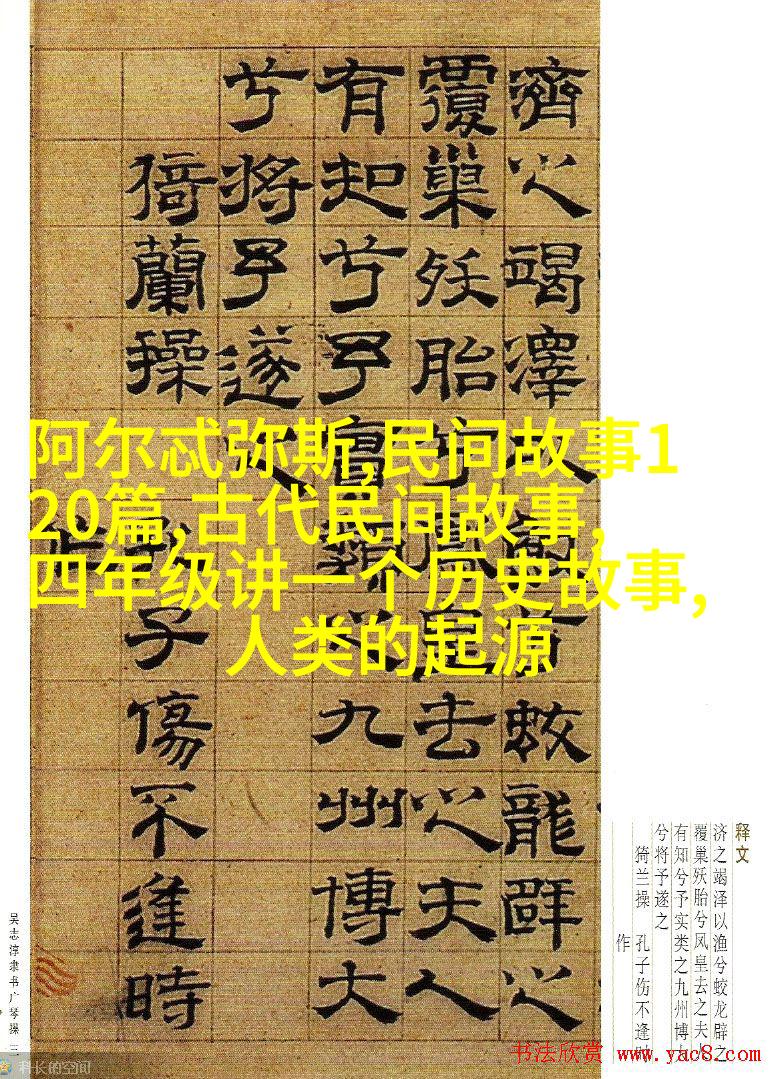 阿尔忒弥斯,民间故事1
20篇,古代民间故事,
四年级讲一个历史故事,
人类的起源
濟之竭澤蛟龍辟之
覆巢殀胎兮鳳皇去之夫人
有知兮予實類之九州博大
兮將予遂之
猗蘭操 孔子傷不逢時
释文
济之竭泽以渔兮蛟龙辟之
覆巢殀胎兮凤皇去之夫
有知兮予实类之九州博
兮将予遂之
猗兰操 孔子伤不逢
作
吴志淳隶书广琴操 三
科长的空间
书法欣赏 www.yac8.com